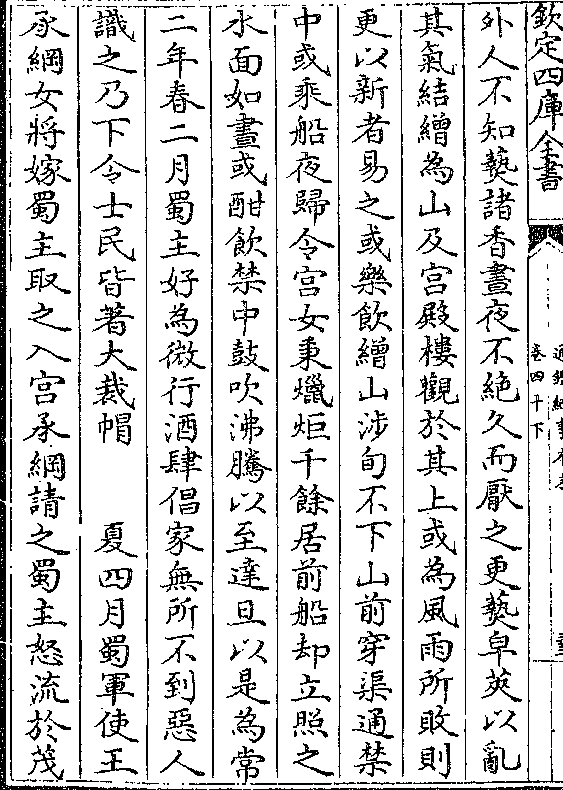 欽定四庫全書
卷四十下
外人不知爇諸香晝夜不絶久而厭之更爇皁莢以亂
其氣結繒為山及宫殿樓觀於其上或為風雨所敗則
更以新者易之或樂飲繒山涉旬不下山前穿渠通禁
中或乘船夜歸令宫女秉蠟炬千餘居前船却立照之
水面如晝或酣飲禁中鼓吹沸騰以至達旦以是為常
二年春二月蜀主好為微行酒肆倡家無所不到惡人
識之乃下令士民皆著大裁帽　　夏四月蜀軍使王
承綱女將嫁蜀主取之入宫承綱請之蜀主怒流於茂